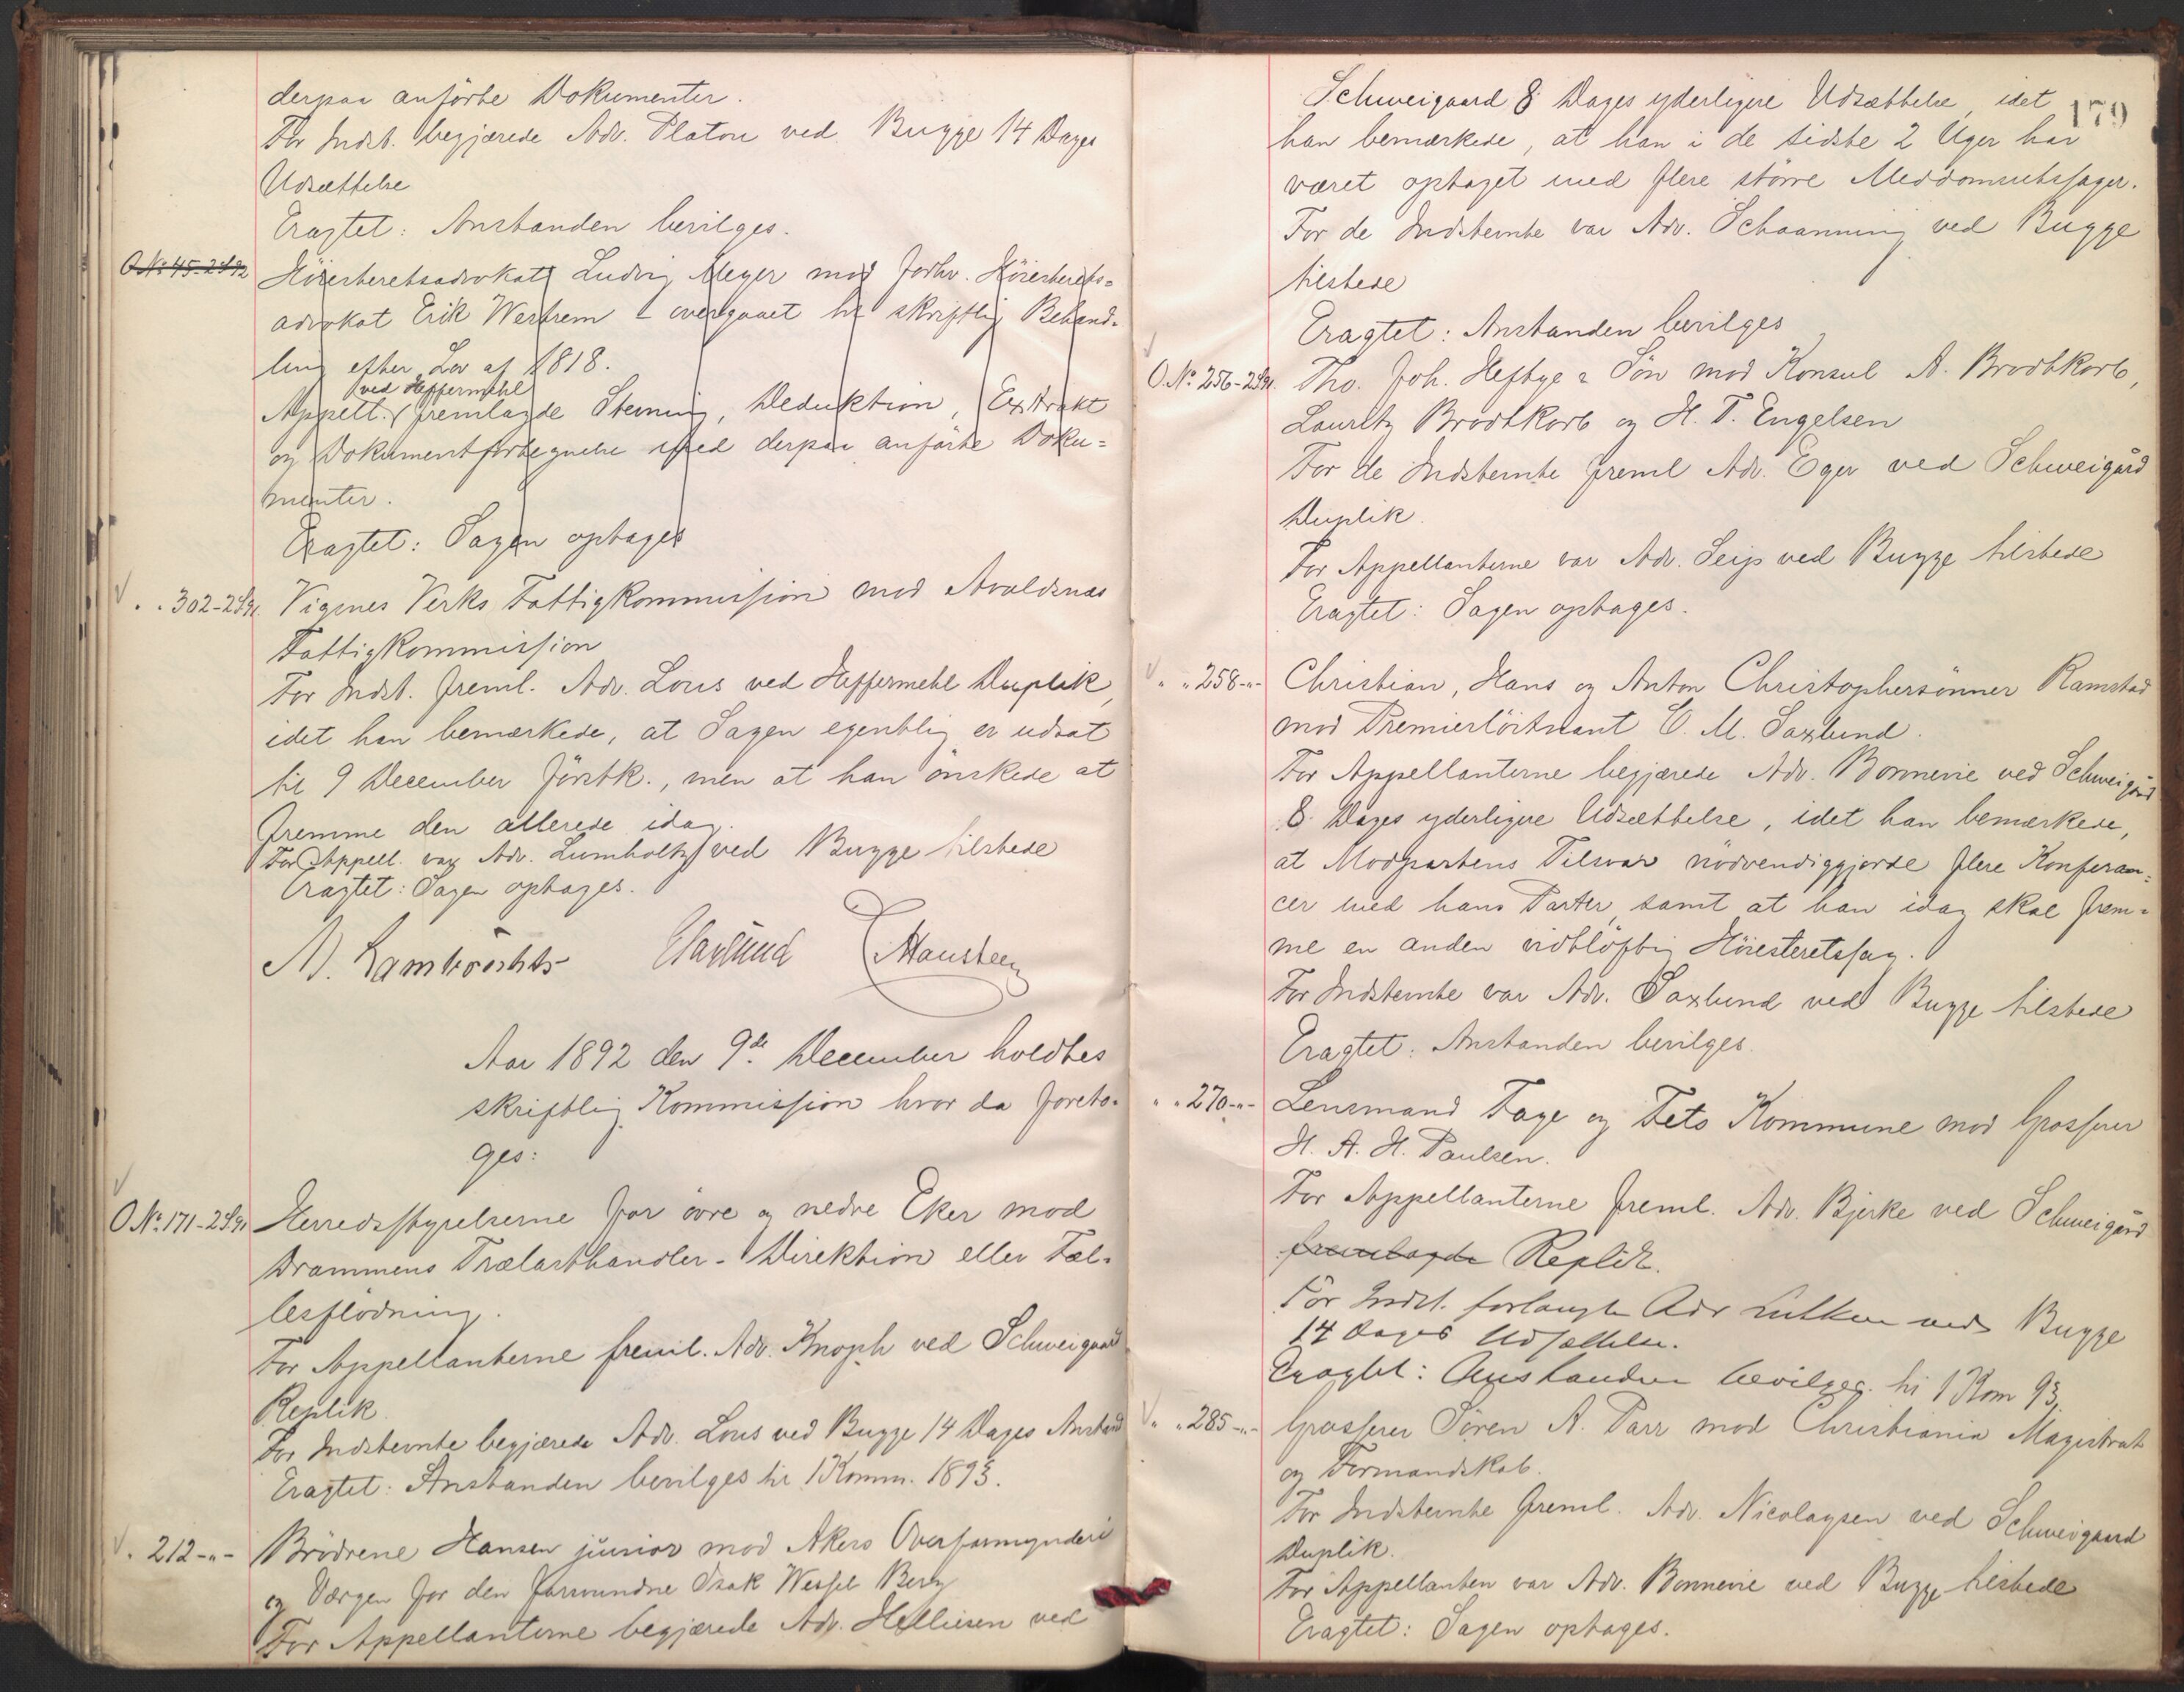 derpaa anförte Dokumenter.
For Indst. begjærede Adv. Platou ved Bugge 14 Dages
Udsættelse
Eragtet: Anstanden bevilges.
O.No 45-2S92 Höiesteretsadvokat Ludvig Meyer mod forhv. Höiesterets=
advokat Erik Werkrem - overgaaet til skriftlig Behand-
ling efter Lov af 1818.
ved Heffermehl
Appell. fremlagde Stevning, Deduktion, Extrakt
og Dokumentfortegnelse med derpaa anförte Doku=
menter.
Eragtet: Sagen optages
" " 302-2S91. Vigsnes Verks Fattigkommission mod Avaldsnæs
Fattigkommission
For Indst. freml. Adv. Lous ved Heffermehl Duplik,
idet han bemærkede, at Sagen egentlig er udsat
til 9 December förstk., men at han önskede at
fremme den allerede idag.
For Appell. var Adv. Lumholtz ved Bugge tilstede
Eragtet: Sagen optages.
Aar 1892 den 9de December holdtes
skriftlig Kommission hvor da foreto-
ges:
O.No 171-2S91 Herredsstyrelserne for övre og nedre Eker mod
Drammens Trælasthandler-Direktion eller Fæl-
lesflödning.
For Appellanterne freml. Adv. Knoph ved Schweigaard
Replik
For Indstevnte begjærede Adv. Lous ved Bugge 14 Dages Anstand
Eragtet: Anstanden bevilges til 1 Komm. 1893.
" 212-"- Brödrene Hansen junior mod Akers Overformynderi
og Værgen for den forsvundne Isak Wessel Berg
For Appellanterne begjærede Adv. Helliesen ved
179
Schweigaard 8 Dages yderligere Udsættelse, idet
han bemærkede, at han i de sidste 2 Uger har
været optaget med flere större Meddomsretssager.
For de Indstevnte var Adv. Schaanning ved Bugge
tilstede
Eragtet: Anstanden bevilges
O.No 256-2S91. Tho. Joh. Heftye & Sön mod Konsul A. Brodtkorb,
Lauritz Brodtkorb og H. T. Engelsen
For de Indstevnte freml Adv. Eger ved Schweigård
Duplik.
For Appellanterne var Adv. Seip ved Bugge tilstede
Eragtet: Sagen optages.
" " 258-"- Christian, Hans og Anton Christophersönner Ramstad
mod Premierlöitnant C. M. Saxlund.
For Appellanterne begjærede Adv. Bonnevie ved Schweigård
8 Dages yderligere Udsættelse, idet han bemærkede,
at Modpartens Tilsvar nödvendiggjorde flere Konferan=
cer med hans Parter, samt at han idag skal frem=
me en anden vidtlöftig Höiesteretssag.
For Indstevnte var Adv. Saxlund ved Bugge tilstede
Eragtet: Anstanden bevilges.
" " 270-"- Lensmand Faye og Fets Kommune mod Grosserer
H. A. H. Paulsen.
For Appellanterne freml. Adv. Bjerke ved Schweigård
fremlagde Replik.
For Indst. forlangte Adv Lutken ved Bugge
14 dages Udsættelse.
Eragtet: Anstanden bevilges til 1 Kom 93.
" " 285-"- Grosserer Sören A. Parr mod Christiania Magistrat
og Formandskab.
For Indstevnte freml. Adv. Nicolaysen ved Schweigaard
Duplik.
For Appellanten var Adv. Bonnevie ved Bugge tilstede
Eragtet: Sagen optages.